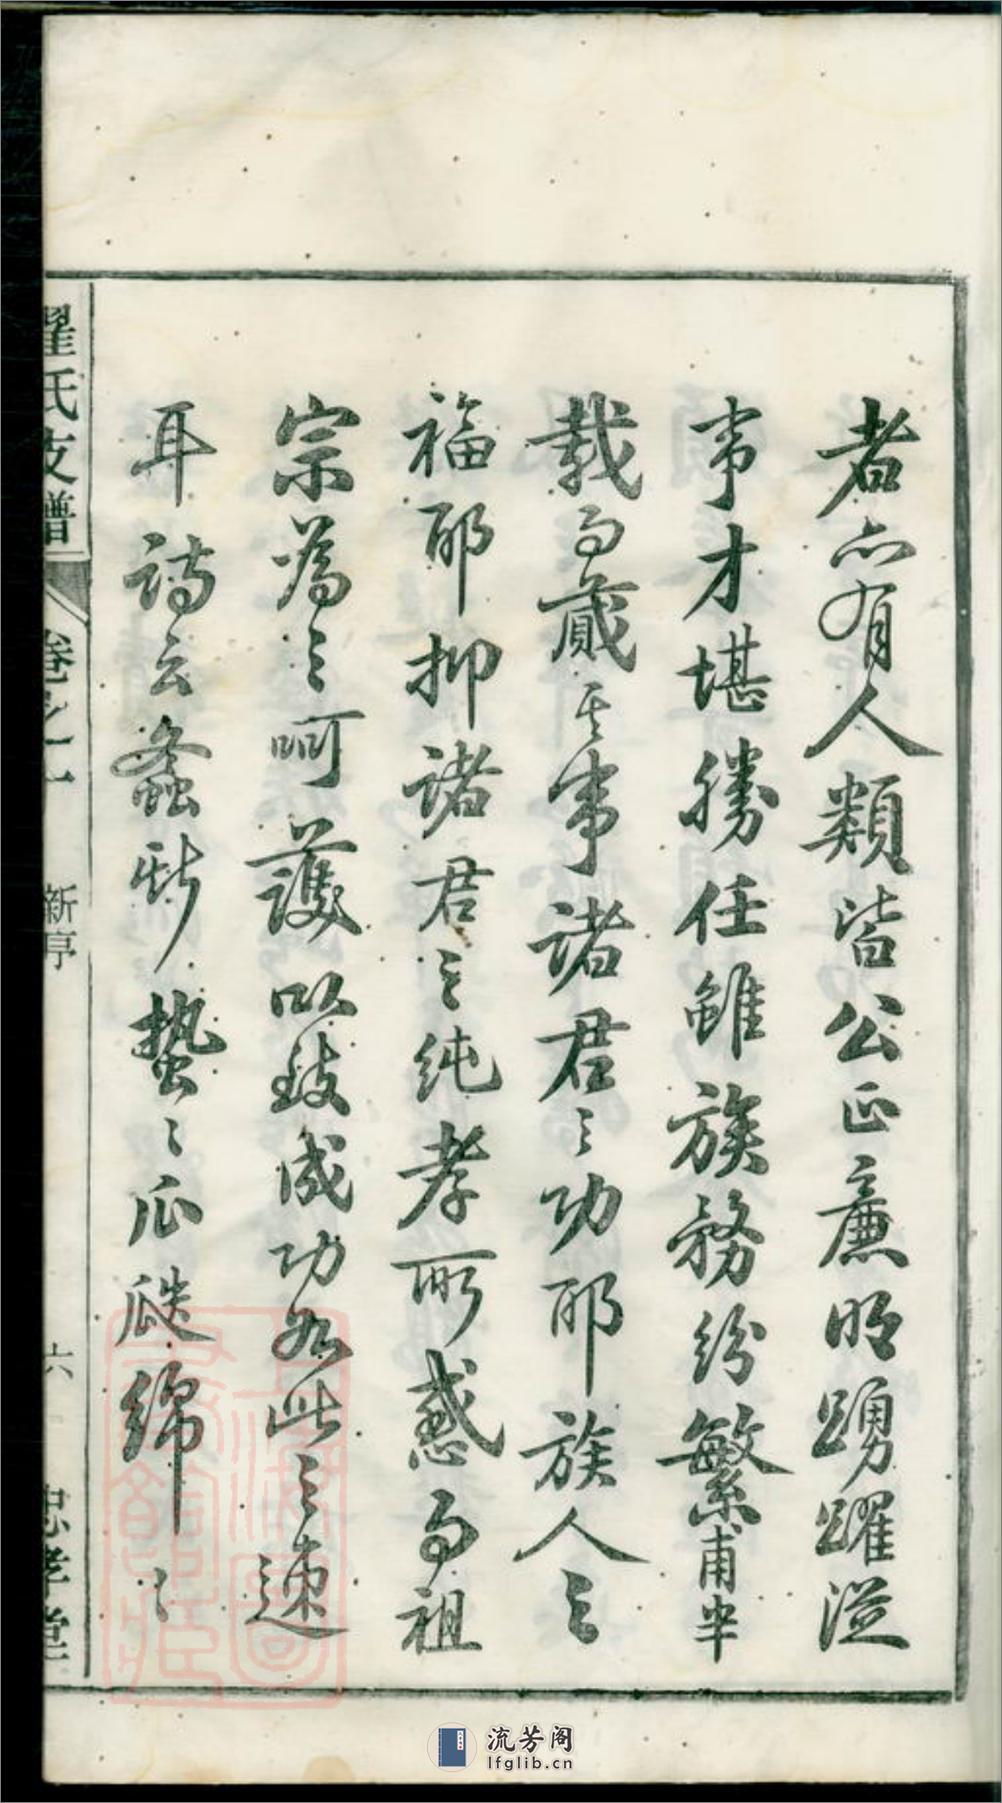 者亦有人類皆公正廉明踴躍從
事才堪勝任雖族務紛繁甫半
載而蕆其事諸君之功耶族人之
福耶抑諸君之純孝所感而祖
宗為之呵護以致成功如此之速
耳詩云螽斯蟄〻瓜瓞綿〻
瞿氏支譜
卷之一
新序
六
忠孝堂
流芳阁
lfglib.cn